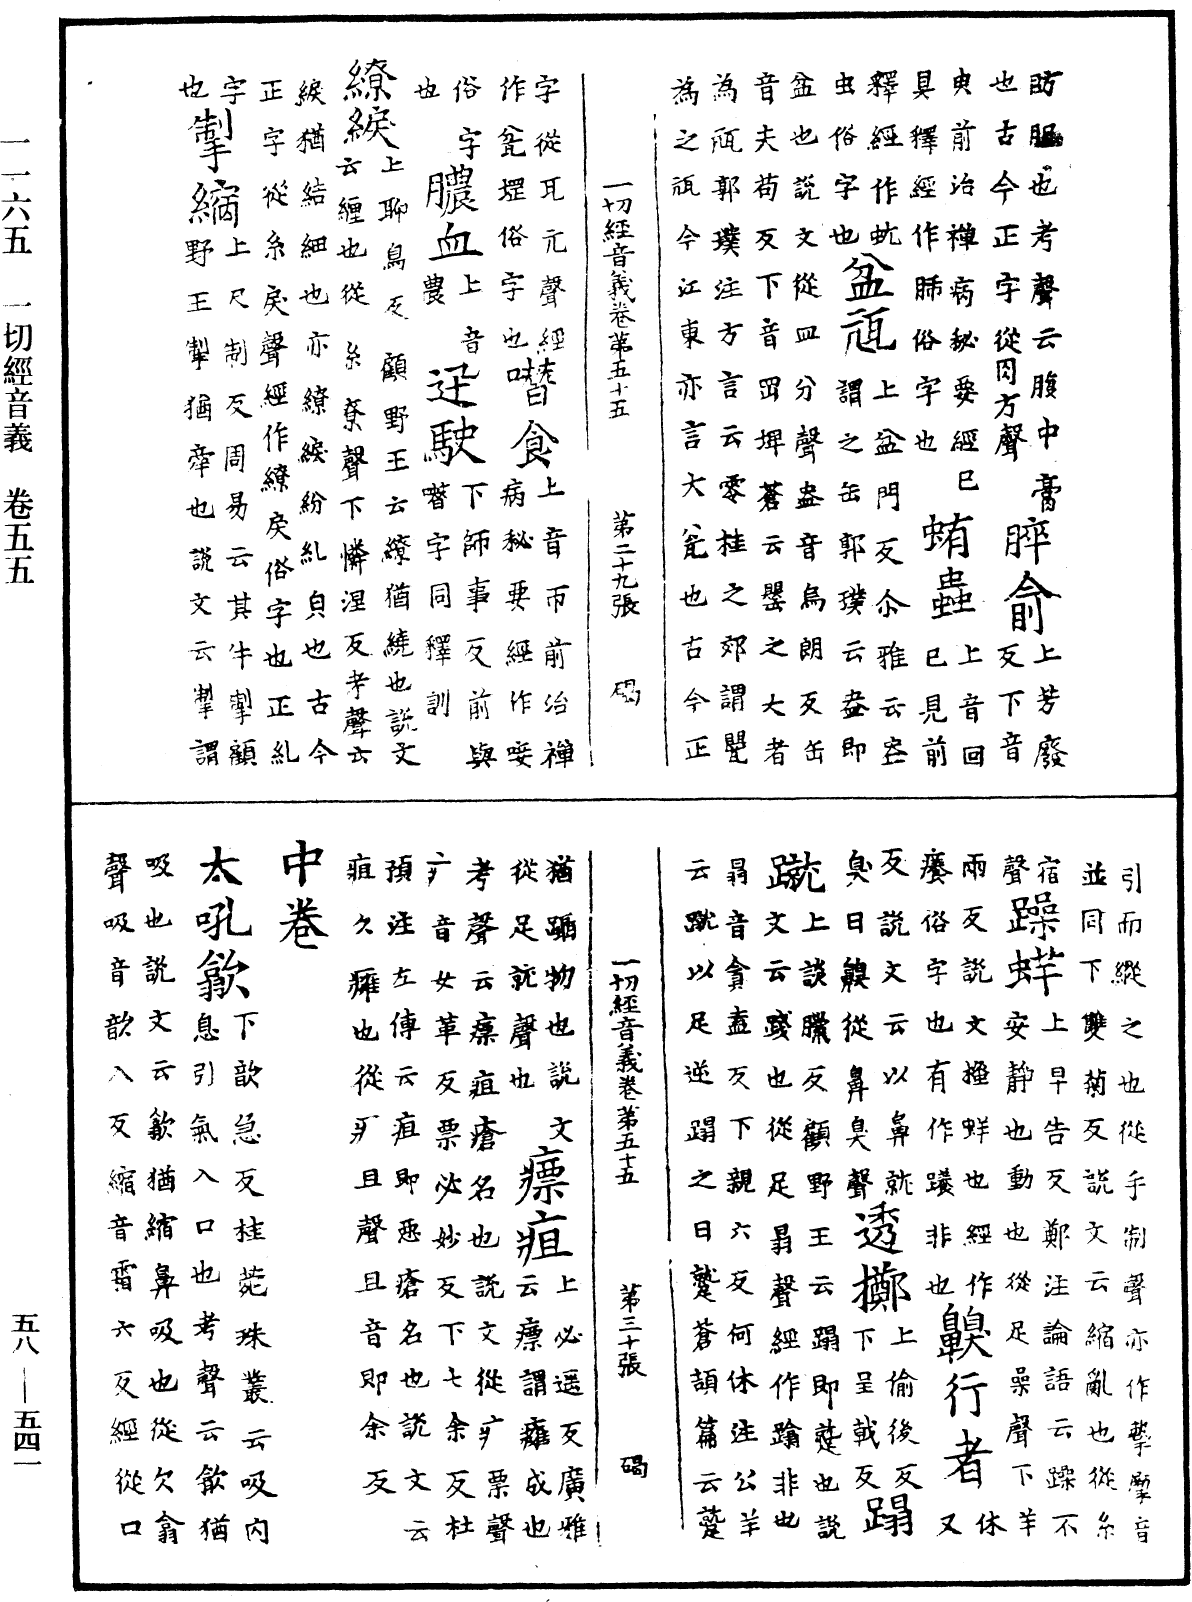 肪𦙄也考聲云腹中膏脺𦛗上芳廢
也古今正字從肉方聲反下音
臾前治禪病秘要經已蛕蟲上音回
具釋經作肺俗字也已見前
釋經作蚘上盆門反尒雅云盎
虫俗字也盆瓨謂之缶郭璞云盎即
盆也說文從皿分聲盎音烏朗反缶
音夫苟反下音岡埤蒼云甖之大者
為瓨郭璞注方言云零桂之郊謂甖
為之瓨今江東亦言大瓮也古今正
一切經音義卷第五十五 第二十九張 碣
字從瓦亢聲經𠾱食上音帀前治禪
作瓮堽俗字也病秘要經作唼
俗字膿血上音迋駛下師事反前與
也農㗱字同釋訓
繚綟上聊鳥反顧野王云繚猶繞也說文
云纏也從糸尞聲下憐涅反考聲云
綟猶結細也亦繚綟紛糺皃也古今
正字從糸戾聲經作繚戾俗字也正糺
字上尺制反周易云其牛掣顧
也掣縮野王掣猶牽也說文云掣謂
引而縱之也從手制聲亦作㨹摩音
並同下雙菊反說文云縮亂也從糸
宿躁蛘上早告反鄭注論語云躁不
聲安靜也動也從足喿聲下羊
兩反說文搔蛘也經作齅行者休
癢俗字也有作䑏非也又
反說文云以鼻就透擲上偷後反
臭曰齅從鼻臭聲下呈戟反蹋
蹴上談臘反顧野王云蹋即蹵也說
文云踐也從足𦐇聲經作蹹非也
𦐇音貪盍反下親六反何休注公羊
云蹴以足逆蹋之曰蹵蒼頡篇云蹵
一切經音義卷第五十五 第三十張 碣
猶躡物也說文瘭疽上必遥反廣雅
從足就聲也云瘭謂癰成也
考聲云瘭疽瘡名也說文從疒票聲
疒音女革反票必妙反下七余反杜
預注左傳云疽即惡瘡名也說文云
疽久癰也從疒且聲且音即余反
中卷
太吼歙下歆急反桂苑珠叢云吸內
息引氣入口也考聲云歙猶
吸也說文云歙猶縮鼻吸也從欠翕
聲吸音歆入反縮音霜六反經從口
一一六五 一切經音義 卷五五
五八—五四一